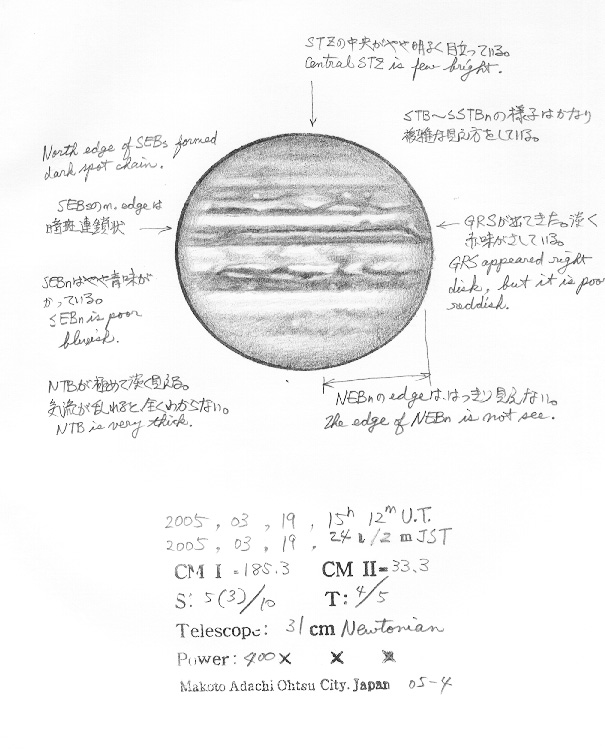 STZの中央がやや明るく目立っている。
Central STZ is few bright.
STB～SSTBnの様子はかなり
複雑な見え方をしている。
North edge of SEBs formed
dark spot chain.
SEBsのn. edgeは
暗斑連鎖状
GRSが出てきた。淡く
赤味がさしている。
GRS appeared right
disk, but it is poor
reddish.
SEBnはやや青味が
かっている。
SEBn is poor
bluish.
NTBが極めて淡く見える。
気流が乱れると全くわからない。
NTB is very thick.
NEBnのedgeは、はっきり見えない。
The edge of NEBn is not see.
2005, 03, 19, 15h 12m U.T.
2005, 03, 19, 24h 12m JST
CM I = 185.3 CM II = 33.3
S: 5(3)/10 T: 4/5
Telescope: 31cm Newtonian
Power: 400× × ×
Makoto Adachi Ohtsu City. Japan 05-4